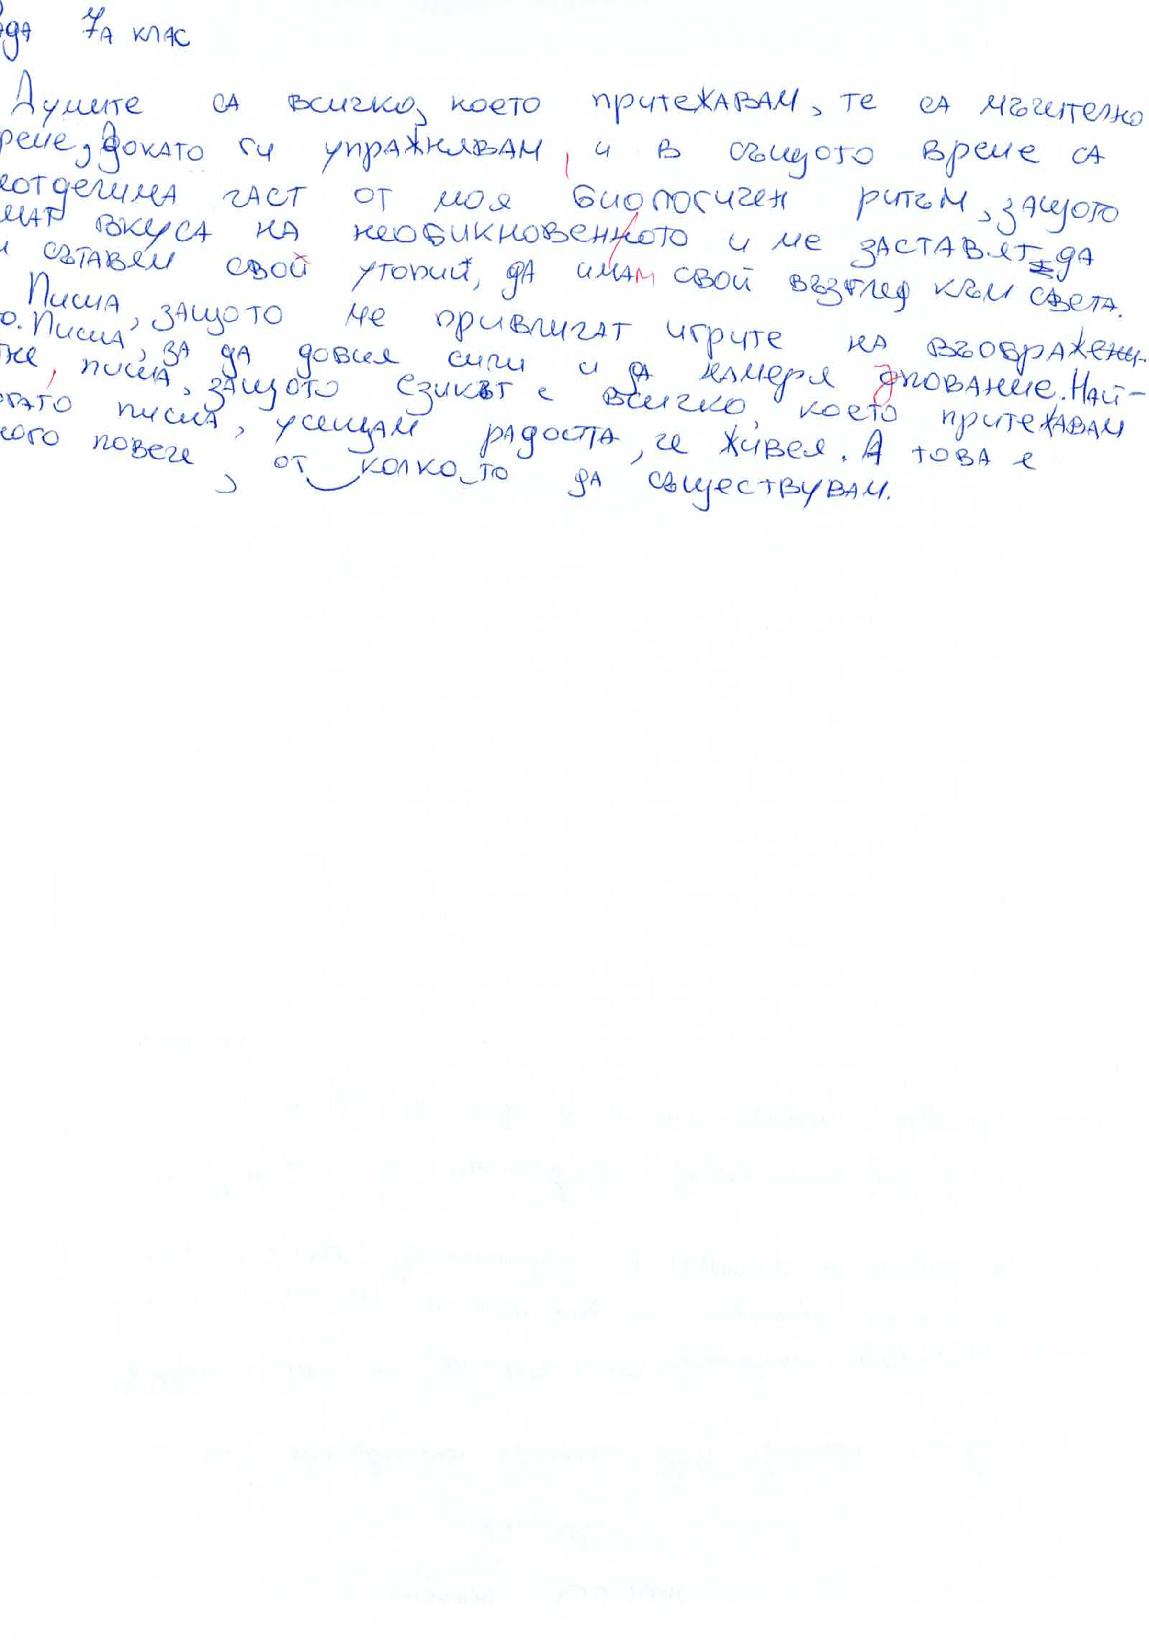 7А КЛАС
Думите СА всичко, което притежАВАМ, те СА мъчително
реме, Докато ги упражнявам, и в същото време СА
еотделима част от моя биологичен ритъм, защото
мат вкуса на необикновенното и ме заставят да
съставям свой утопий, да имам свой възглед към света.
Пиша, защото ме привличат игрите на въображени-
о. Пиша, за да добия сили и да намеря упование. Най-
же, пиша, защото езикът е всичко, което притежавам
огато пиша, усещам радоста, че живея. А това е
ного повече, от колко_то да съществувам.